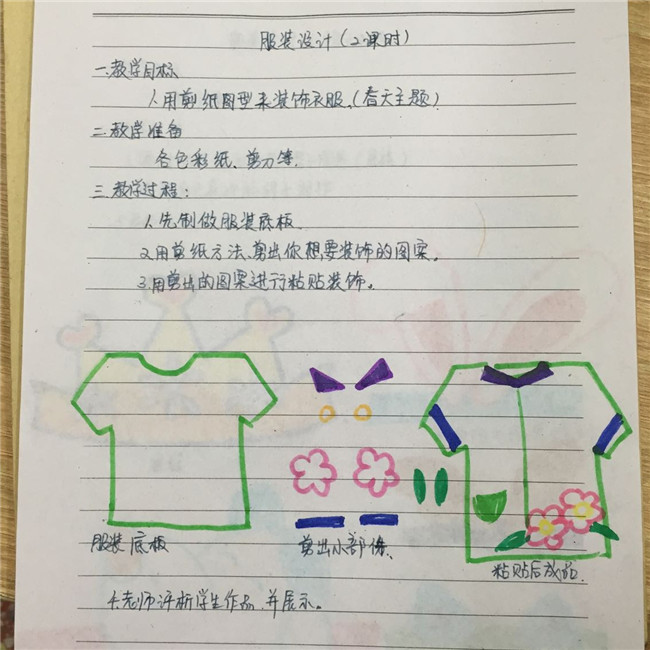 服装设计(2课时)
一.教学目标
1.用剪纸图型来装饰衣服。(春天主题)
二.教学准备
各色彩纸、剪刀等.
三.教学过程:
1.先制做服装底板.
2.用剪纸方法、剪出你想要装饰的图案。
3.用剪出的图案进行粘贴装饰。
服装底板
剪出小部件、
粘贴后成品.
4.老师评析学生作品,并展示。